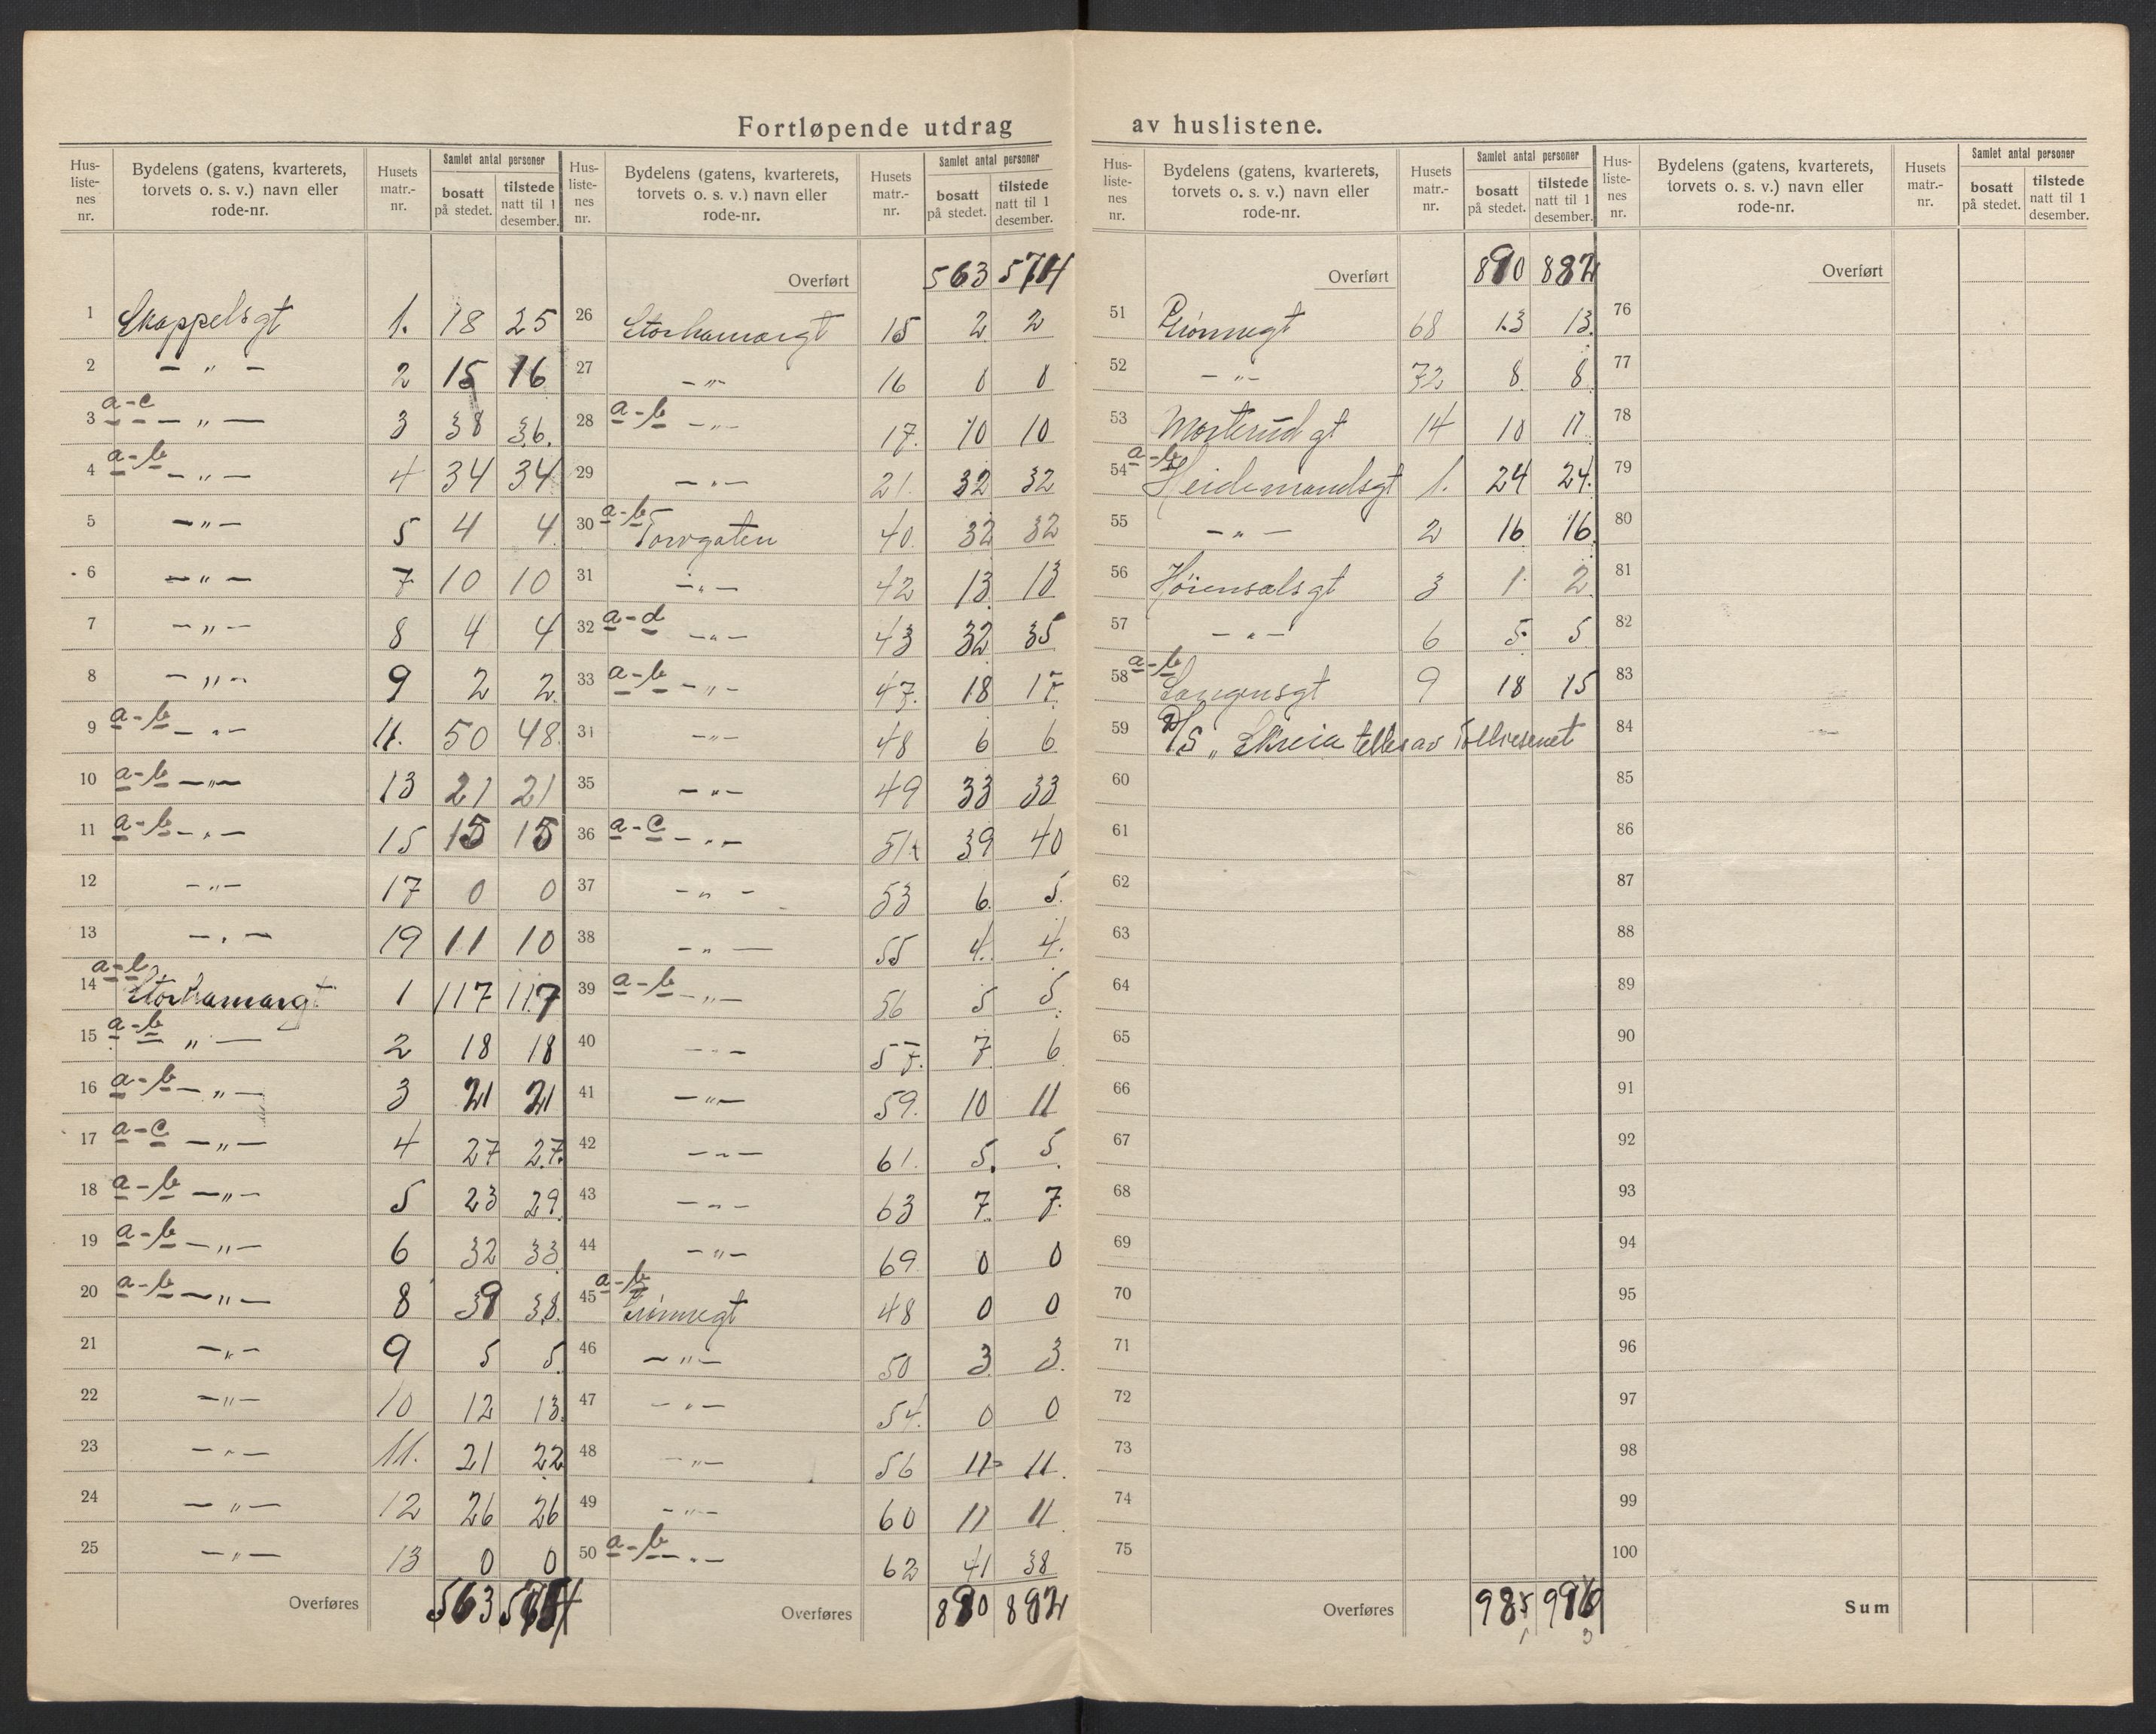 Fortløpende utdrag av huslistene.
Hus-listenes nr. | Bydelens (gatens, kvarterets, torvets o. s. v.) navn eller rode-nr. | Husets matr.-nr. | Samlet antal personer | bosatt på stedet. | tilstede natt til 1 desember.
1 Skappelsgt 1. 18 25
2 — „ — 2 15 16
3 a-c — „ — 3 38 36.
4 a-b — „ — 4 34 34
5 — „ — 5 4 4
6 — „ — 7 10 10
7 — „ — 8 4 4
8 — „ — 9 2 2
9 a-b — „ — 11. 50 48.
10 a-b — „ — 13 21 21
11 a-b — „ — 15 15 15
12 — „ — 17 0 0
13 — „ — 19 11 10
14 a-b Storhamargt 1 117 117
15 a-b „ — 2 18 18
16 a-b — „ — 3 21 21
17 a-c — „ — 4 27 27.
18 a-b — „ — 5 23 29.
19 a-b — „ — 6 32 33
20 a-b — „ — 8 39 38.
21 — „ — 9 5 5.
22 — „ — 10 12 13.
23 — „ — 11. 21 22
24 — „ — 12 26 26
25 — „ — 13 0 0
Overføres 563
Hus-listenes nr. | Bydelens (gatens, kvarterets, torvets o. s. v.) navn eller rode-nr. | Husets matr.-nr. | Samlet antal personer | bosatt på stedet. | tilstede natt til 1 desember.
Overført 563 574
26 Storhamargt 15 2 2
27 — „ — 16 0 0
28 a-b — „ — 17. 10 10
29 — „ — 21. 32 32
30 a-b Torvgaten 40. 32 32
31 — „ — 42 13. 13
32 a-d — „ — 43 32 35
33 a-b — „ — 47. 18 17.
34 — „ — 48 6 6
35 — „ — 49 33 33
36 a-c — „ — 51 39 40
37 — „ — 53 6. 5.
38 — „ — 55 4. 4.
39 a-b — „ — 56 5 5.
40 — „ — 57. 7 6
41 — „ — 59. 10 11
42 — „ — 61. 5. 5.
43 — „ — 63 7. 7.
44 — „ — 69 0 0
45 a-b Grønnegt 48 0 0
46 — „ — 50 3. 3.
47 — „ — 54. 0 0
48 — „ — 56 11 11.
49 — „ — 60 11 11
50 a-b — „ — 62 41 38
Overføres 890 892
Hus-listenes nr. | Bydelens (gatens, kvarterets, torvets o. s. v.) navn eller rode-nr. | Husets matr.-nr. | Samlet antal personer | bosatt på stedet. | tilstede natt til 1 desember.
Overført 890 892
51 Grønnegt 68 13 13.
52 — „ — 72 8. 8.
53 Morterudgt 14 10 11
54 a-b Heidemandsgt 1. 24 24.
55 — „ — 2 16 16.
56 Høiensalsgt 3 1 2.
57 — „ — 6 5. 5.
58 a-b Langensgt 9 18 15
59 D/S „Skreia telles av Tollvesenet
60
61
62
63
64
65
66
67
68
69
70
71
72
73
74
75
Overføres 985
Hus-listenes nr. | Bydelens (gatens, kvarterets, torvets o. s. v.) navn eller rode-nr. | Husets matr.-nr. | Samlet antal personer | bosatt på stedet. | tilstede natt til 1 desember.
Overført
76
77
78
79
80
81
82
83
84
85
86
87
88
89
90
91
92
93
94
95
96
97
98
99
100
Sum